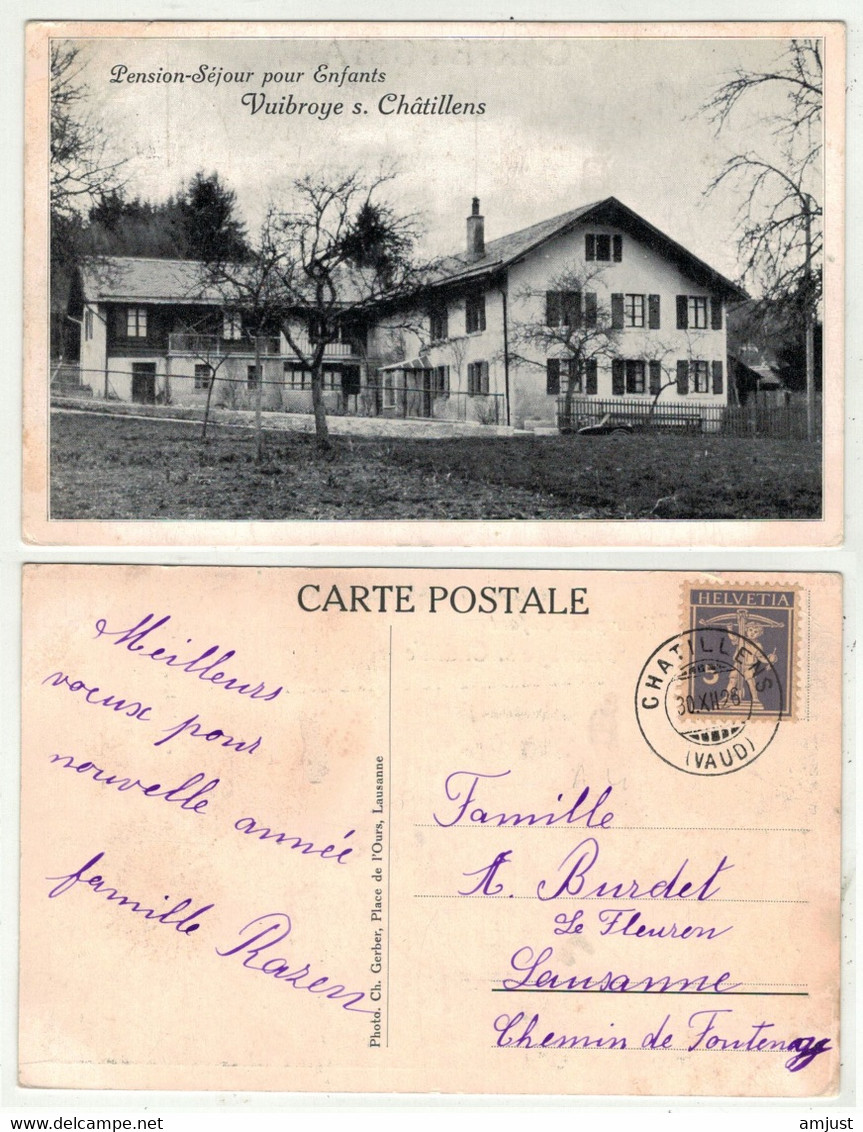 Pension-Séjour pour Enfants
Vuibroye s. Châtillens
CARTE POSTALE
HELVETIA
5
CHATILLENS
30.XII.26
(VAUD)
Meilleurs
vœux pour
nouvelle année
famille Razen
Photo. Ch. Gerber, Place de l'Ours, Lausanne
Famille
A. Burdet
Le Fleuron
Lausanne
Chemin de Fontenay
amjust